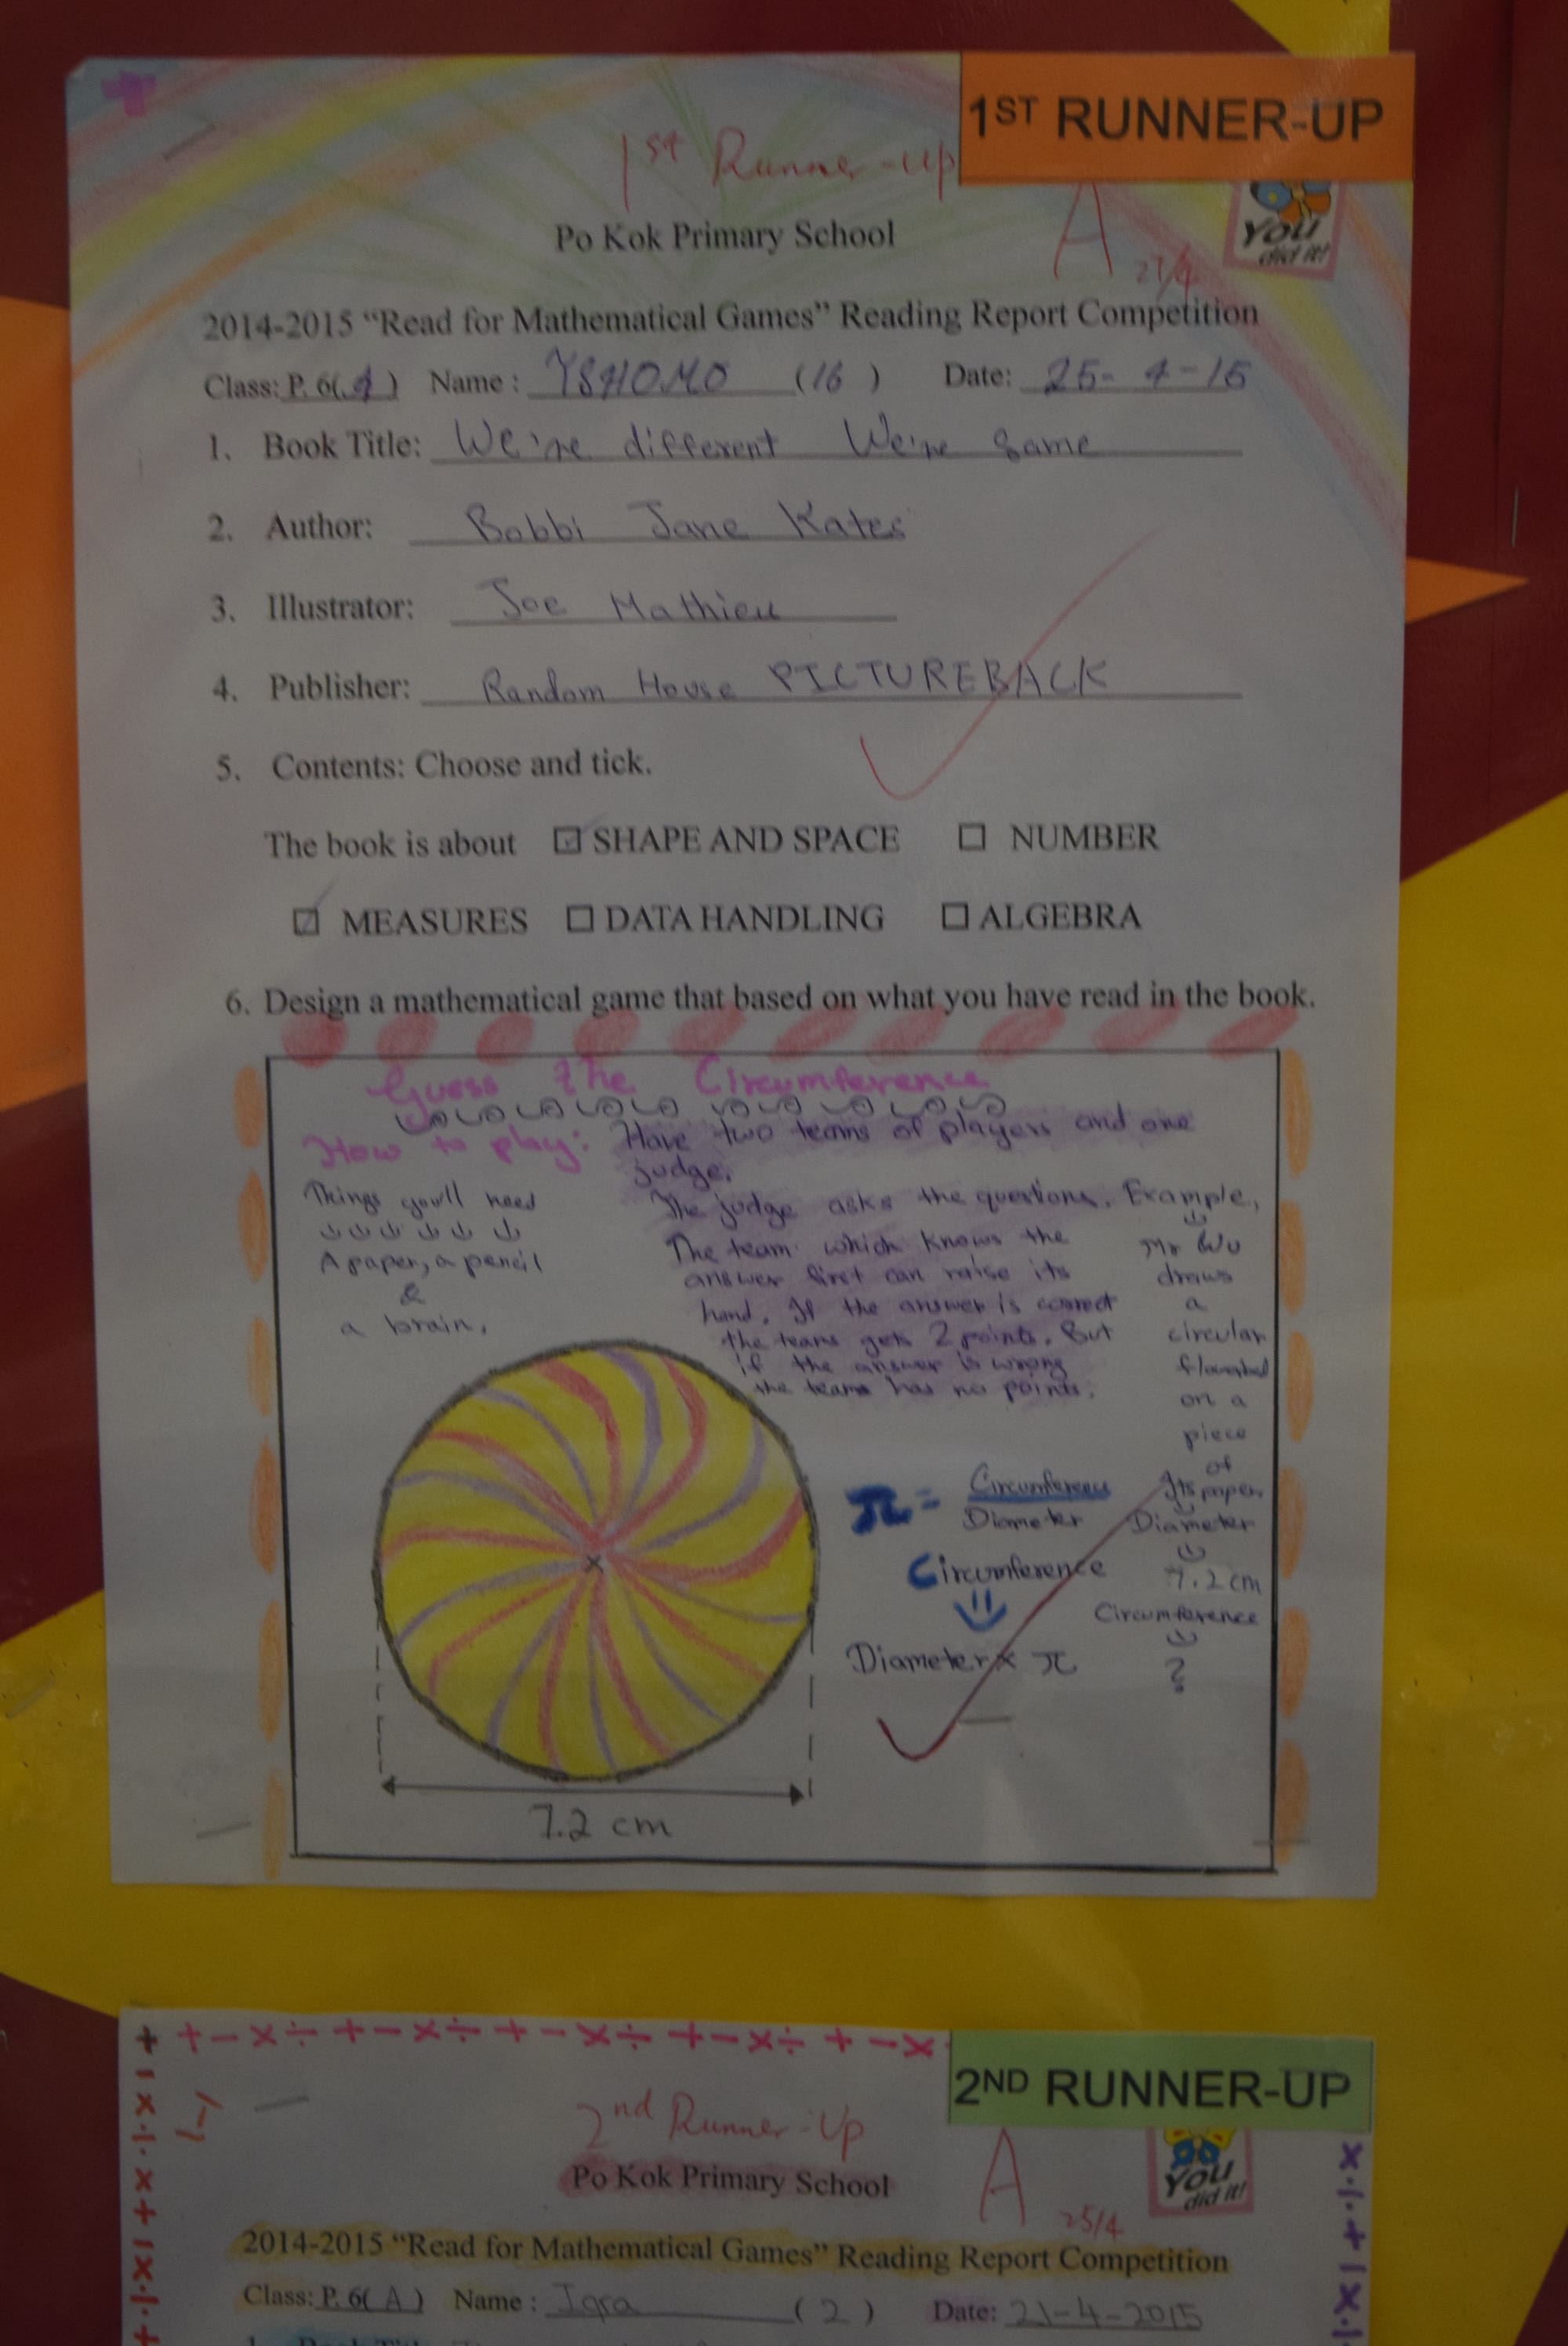 1ST RUNNER-UP
1st Runner-up
A
YOU
did it!
27/4
Po Kok Primary School
2014-2015 “Read for Mathematical Games” Reading Report Competition
Class: P. 6(A) Name : YSHOMO (16) Date: 25-4-15
1. Book Title: We're different We're same
2. Author: Bobbi Jane Kates
3. Illustrator: Joe Mathieu
4. Publisher: Random House PICTUREBACK
5. Contents: Choose and tick.
The book is about ☑ SHAPE AND SPACE ☐ NUMBER
☑ MEASURES ☐ DATA HANDLING ☐ ALGEBRA
6. Design a mathematical game that based on what you have read in the book.
Guess the Circumference
How to play: Have two teams of players and one
judge.
Things you'll need
A paper, a pencil
&
a brain.
The judge asks the questions.
The team which knows the
answer first can raise its
hand. If the answer is correct
the teams gets 2 points. But
if the answer is wrong
the teams has no points.
Example,
Mr Wu
draws
a
circular
on a
piece
of
paper
Its
Diameter
7.2 cm
Circumference
?
π = Circumference
Diameter
Circumference
Diameter × π
7.2 cm
2ND RUNNER-UP
2nd Runner-Up
A
YOU
did it!
25/4
Po Kok Primary School
2014-2015 “Read for Mathematical Games” Reading Report Competition
Class: P. 6(A) Name : Iqra (2) Date: 21-4-2015